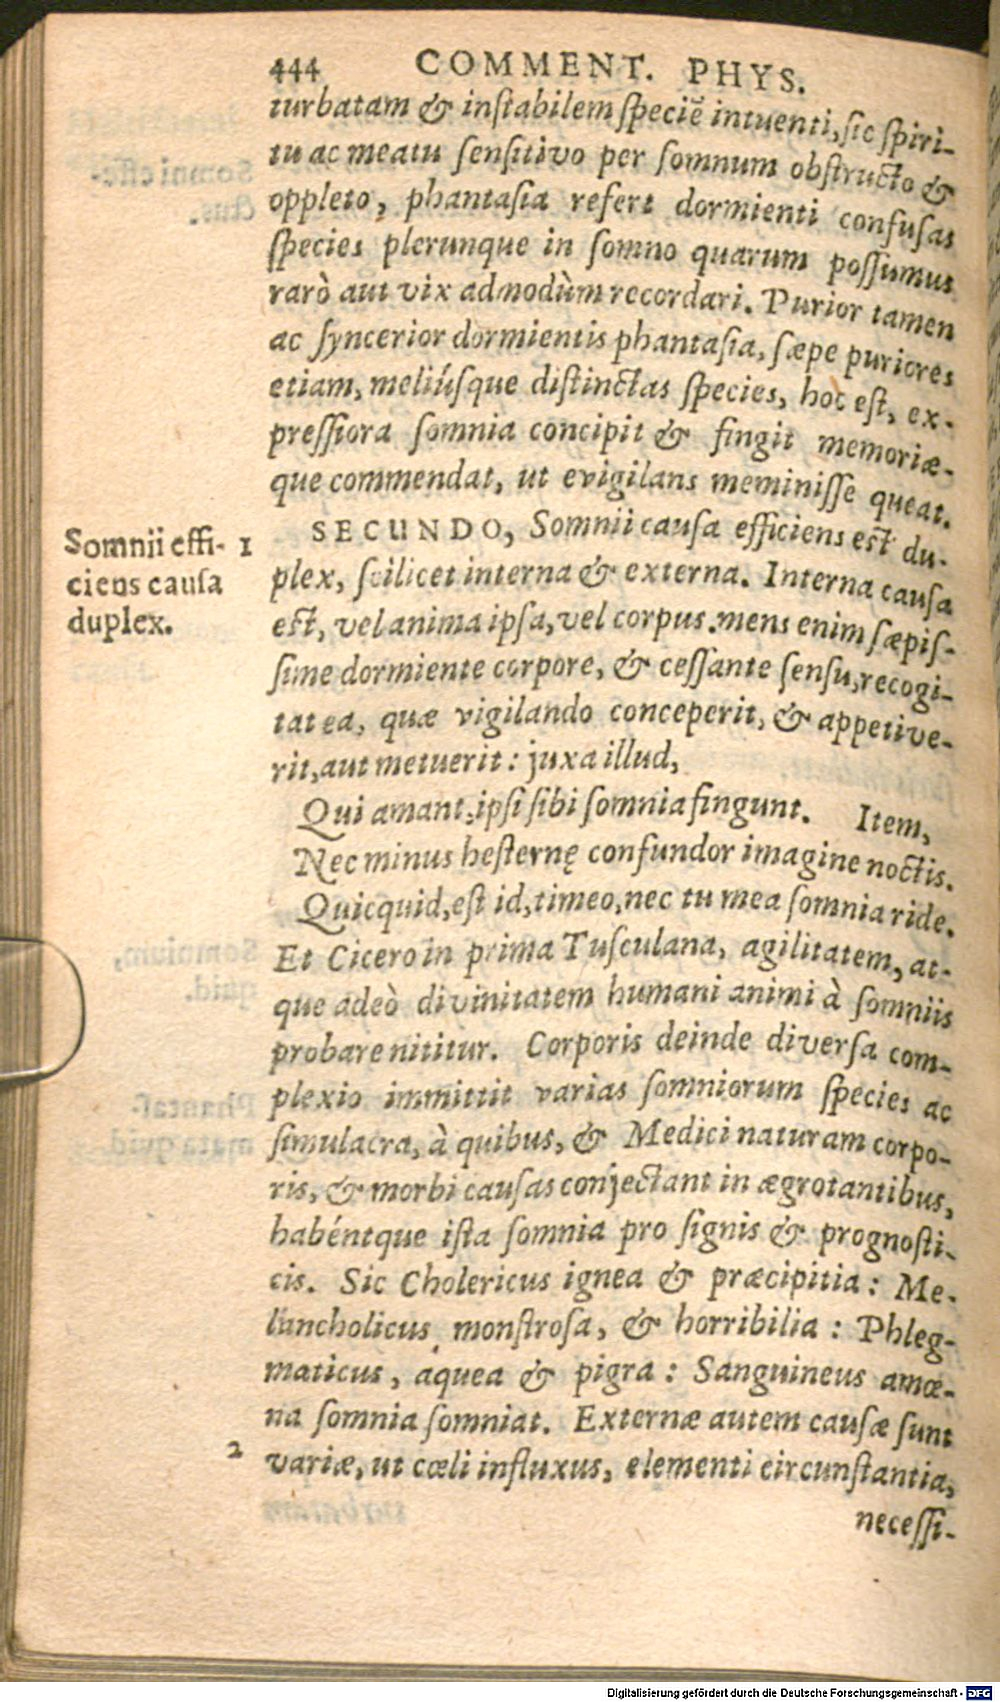 444 COMMENT. PHYS.
turbatam & inſtabilem ſpeciẽ intuenti, ſic ſpiri-
tu ac meatu ſenſitivo per ſomnum obſtructo &
oppleto, phantaſia refert dormienti confuſas
ſpecies plerunque in ſomno quarum poſſumus
rarò aut vix admodùm recordari. Purior tamen
ac ſyncerior dormientis phantaſia, ſæpe puriores
etiam, meliúſque diſtinctas ſpecies, hoc eſt, ex-
preſſiora ſomnia concipit & fingit memoriæ-
que commendat, ut evigilans meminiſſe queat.
SECUNDO, Somnii cauſa efficiens eſt du-
Somnii effi-
ciens cauſa
duplex.
1
plex, ſcilicet interna & externa. Interna cauſa
eſt, vel anima ipſa, vel corpus. mens enim ſæpiſ-
ſime dormiente corpore, & ceſſante ſenſu, recogi-
tat ea, quæ vigilando conceperit, & appetive-
rit, aut metuerit: juxa illud,
Qui amant, ipſi ſibi ſomnia fingunt. Item,
Nec minus heſternę confundor imagine noctis.
Quicquid, eſt id, timeo, nec tu mea ſomnia ride.
Et Cicero in prima Tuſculana, agilitatem, at-
que adeò divinitatem humani animi à ſomniis
probare nititur. Corporis deinde diverſa com-
plexio immittit varias ſomniorum ſpecies ac
ſimulacra, à quibus, & Medici naturam corpo-
ris, & morbi cauſas conjectant in ægrotantibus,
habéntque iſta ſomnia pro ſignis & prognoſti-
cis. Sic Cholericus ignea & præcipitia: Me-
lancholicus monſtroſa, & horribilia: Phleg-
maticus, aquea & pigra: Sanguineus amœ-
na ſomnia ſomniat. Externæ autem cauſæ ſunt
2 variæ, ut cœli influxus, elementi circunſtantia,
neceſſi-
Digitalisierung gefördert durch die Deutsche Forschungsgemeinschaft - DFG